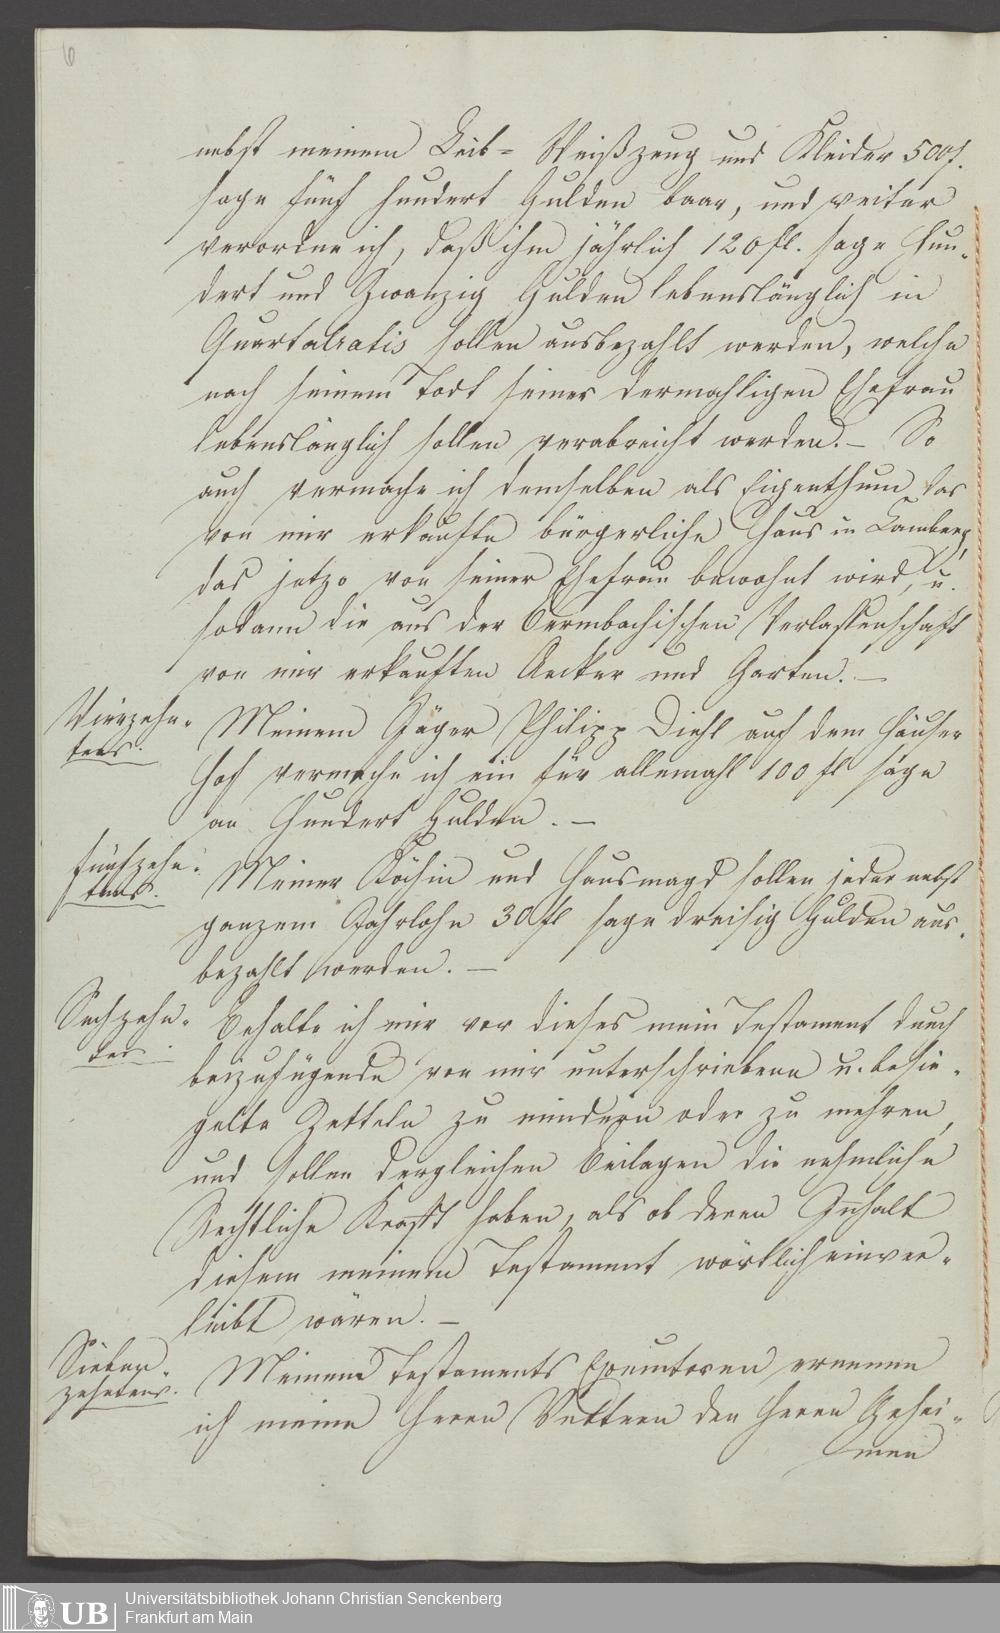 6
nebst meinem Leib= Weißzeug und Kleider 500f.
sage fünf hundert Gulden baar, und weiter
verordne ich, daß ihm jährlich 120 fl. sage Hun-
dert und Zwanzig Gulden lebenslänglich in
Quartalratis sollen ausbezahlt werden, welche
nach seinem Todt seiner dermahligen Ehefrau
lebenslänglich sollen verabreicht werden. – So
auch vermache ich demselben als Eigenthum das
von mir erkaufte bürgerliche Haus in Camberg,
das jetzo von seiner Ehefrau bewohnt wird, u.
sodann die aus der Oermbachischen Verlassenschaft
von mir erkauften Aecker und Garten. –
Vierzehn-
tens.
Meinem Jäger Philipp Diehl auf dem Häuser
Hof vermache ich ein für allemahl 100 fl sage
an Hundert Gulden. –
fünfzehn-
tens.
Meiner Köchin und Hausmagd sollen jeder nebst
ganzem Jahrlohn 30 fl sage dreisig Gulden aus-
bezahlt werden. –
Sechzehn-
tens
Behalte ich mir vor dieses mein Testament durch
beizufügende von mir unterschriebene u. besie-
gelte Zetteln zu mindern oder zu mehren,
und sollen dergleichen Beilagen die nehmliche
Rechtliche Krafft haben, als ob deren Inhalt
diesem meinem Testament wörtlich einver-
leibt wären. –
Sieben-
zehntens.
Meinem Testaments Executoren ernenne
ich meine Herrn Vettern den Herrn Gehei-
men
UB
Universitätsbibliothek Johann Christian Senckenberg
Frankfurt am Main